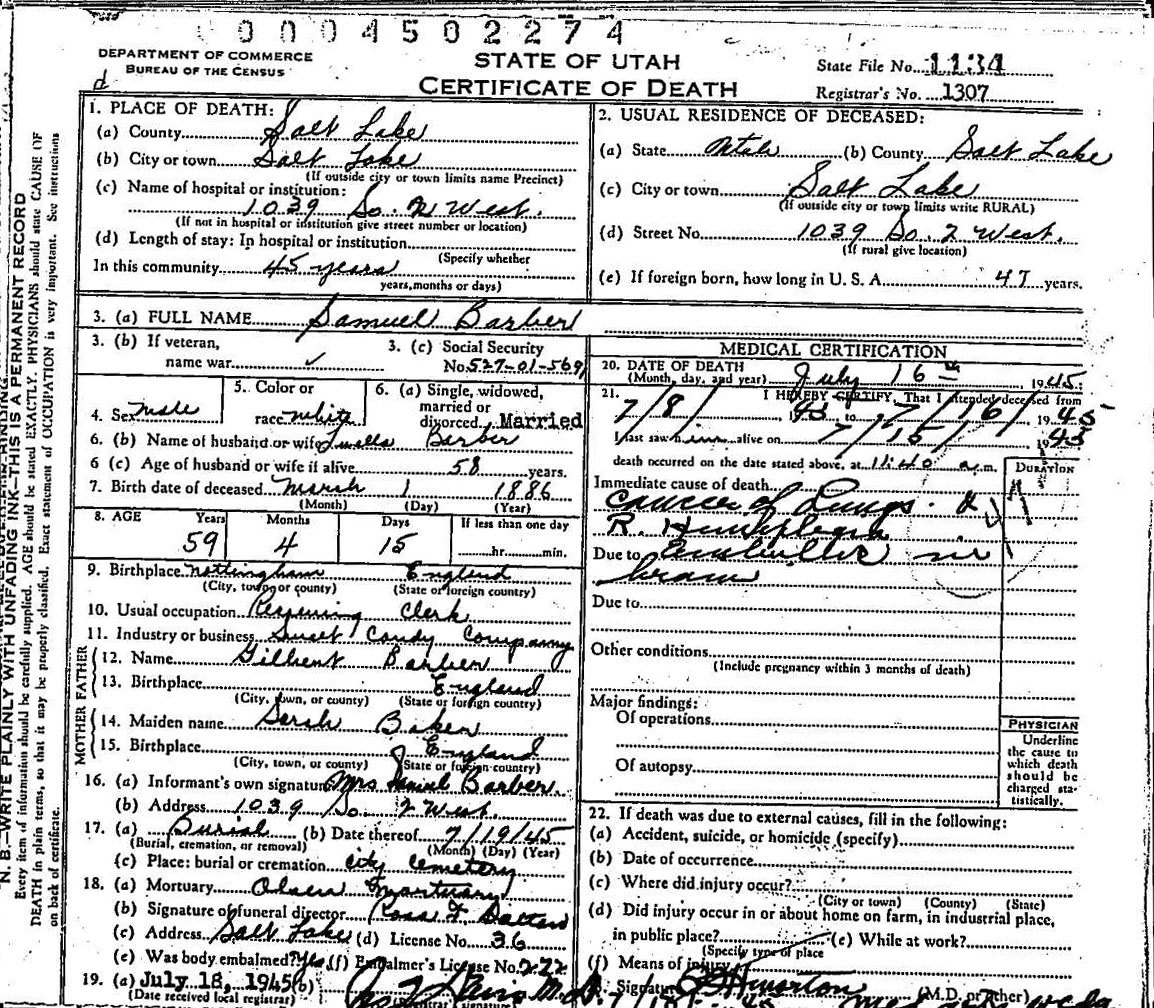 0004502274
DEPARTMENT OF COMMERCE
BUREAU OF THE CENSUS
d
STATE OF UTAH
CERTIFICATE OF DEATH
State File No. 1134
Registrar's No. 1307
1. PLACE OF DEATH:
(a) County Salt Lake
(b) City or town Salt Lake
(If outside city or town limits name Precinct)
(c) Name of hospital or institution:
1039 So. 2 West.
(If not in hospital or institution give street number or location)
(d) Length of stay: In hospital or institution
(Specify whether
In this community 45 years
years, months or days)
2. USUAL RESIDENCE OF DECEASED:
(a) State Utah (b) County Salt Lake
(c) City or town Salt Lake
(If outside city or town limits write RURAL)
(d) Street No. 1039 So. 2 West.
(If rural give location)
(e) If foreign born, how long in U. S. A. 47 years.
3. (a) FULL NAME Samuel Barber
3. (b) If veteran,
name war ✓
3. (c) Social Security
No. 527-01-5691
4. Sex male
5. Color or
race white
6. (a) Single, widowed,
married or
divorced Married
6. (b) Name of husband or wife Luella Barber
6 (c) Age of husband or wife if alive 58 years.
7. Birth date of deceased Marsh 1 1886
(Month) (Day) (Year)
8. AGE Years Months Days If less than one day
59 4 15 hr. min.
9. Birthplace Nottingham England
(City, town, or county) (State or foreign country)
10. Usual occupation Clerk
11. Industry or business Sweet Candy Company
FATHER
12. Name Gilbert Barber
13. Birthplace England
(City, town, or county) (State or foreign country)
MOTHER
14. Maiden name Sarah Baker
15. Birthplace England
(City, town, or county) (State or foreign country)
16. (a) Informant's own signature Mrs Samuel Barber.
(b) Address 1039 So. 2 West.
17. (a) Burial (b) Date thereof 7/19/45
(Burial, cremation, or removal) (Month) (Day) (Year)
(c) Place: burial or cremation City Cemetery
18. (a) Mortuary Olsen Mortuary
(b) Signature of funeral director Ross F Dalton
(c) Address Salt Lake (d) License No. 36
(e) Was body embalmed? Yes (f) Embalmer's License No. 222
19. (a) July 18, 1945 (b)
(Date received local registrar)
MEDICAL CERTIFICATION
20. DATE OF DEATH
(Month, day, and year) July 16th, 1945:
21. I HEREBY CERTIFY, That I attended deceased from
7/8/ 1943, to 7/16/ 1945
I last saw him alive on 7/15/ 1945
death occurred on the date stated above, at 11:40 a.m.
DURATION
Immediate cause of death
cancer of Lungs. &
R. Hemiplegia
Due to
Due to
Other conditions
(Include pregnancy within 3 months of death)
Major findings:
Of operations
Of autopsy
PHYSICIAN
Underline
the cause to
which death
should be
charged sta-
tistically.
22. If death was due to external causes, fill in the following:
(a) Accident, suicide, or homicide (specify)
(b) Date of occurrence
(c) Where did injury occur?
(City or town) (County) (State)
(d) Did injury occur in or about home on farm, in industrial place,
in public place? (e) While at work?
(Specify type of place
(f) Means of injury
Signature
(M.D. or other)
N. B.—WRITE PLAINLY WITH UNFADING INK—THIS IS A PERMANENT RECORD
Every item of information should be carefully supplied. AGE should be stated EXACTLY. PHYSICIANS should state CAUSE OF
DEATH in plain terms, so that it may be properly classified. Exact statement of OCCUPATION is very important. See instructions
on back of certificate.